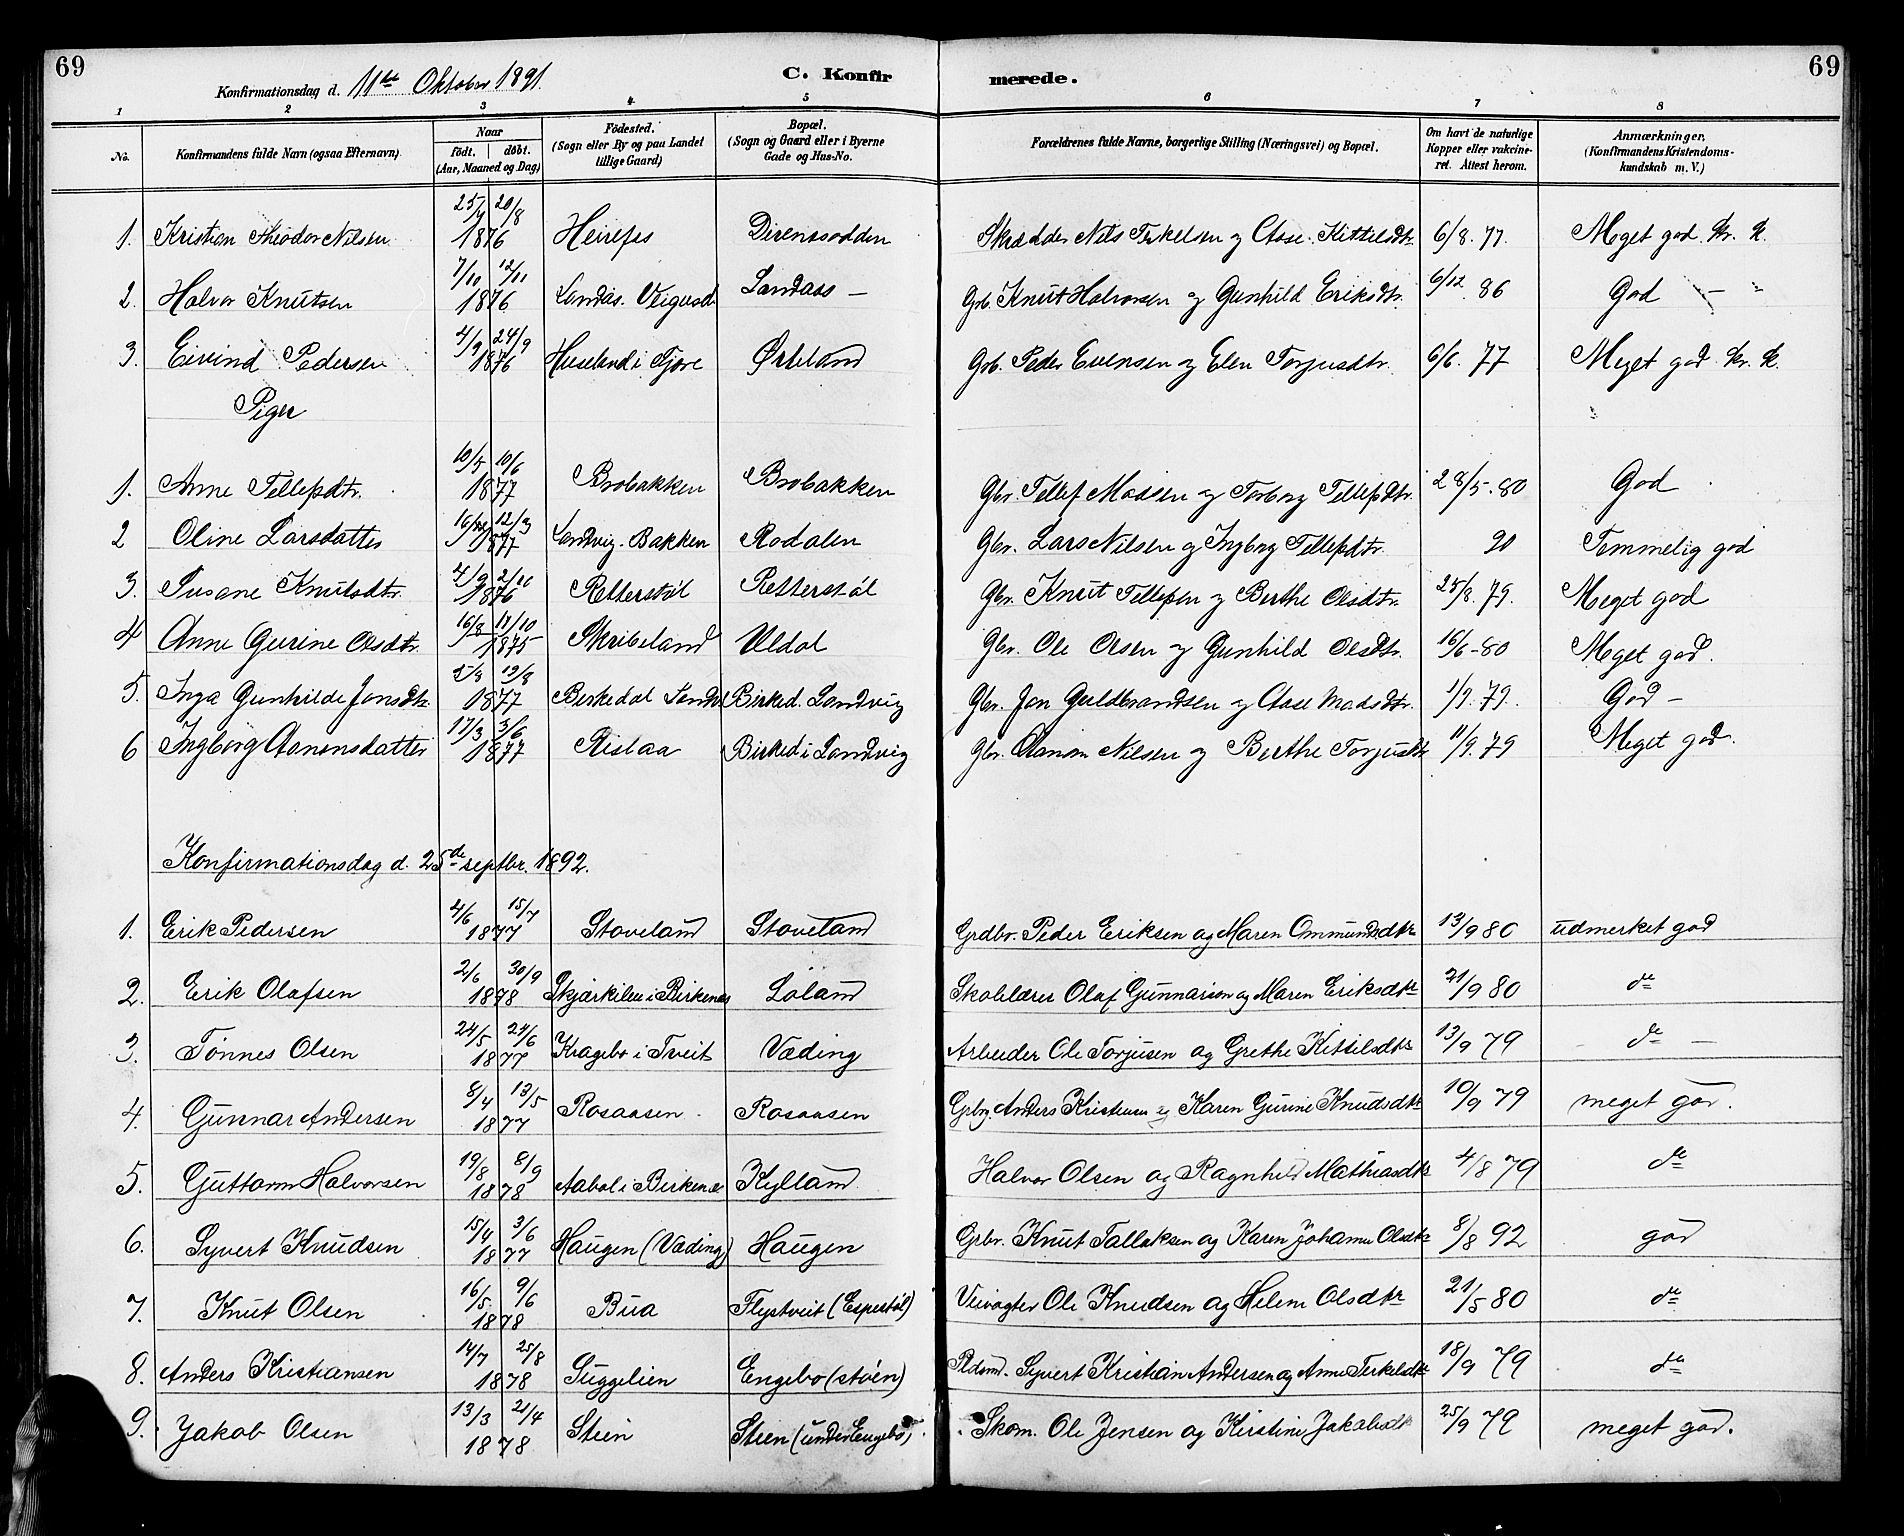 69
Konfirmationsdag d. 11te Oktober 1891.
C. Konfirmerede.
69
1 2 3 4 5 6 7 8
No.
Konfirmandens fulde Navn (ogsaa Efternavn).
Naar
födt. döbt.
(Aar, Maaned og Dag)
Födested.
(Sogn eller By og paa Landet tillige Gaard)
Bopæl.
(Sogn og Gaard eller i Byerne Gade og Hus-No.
Forældrenes fulde Navne, borgerlige Stilling (Næringsvei) og Bopæl.
Om havt de naturlige Kopper eller vakcineret. Attest herom.
Anmærkninger,
(Konfirmandens Kristendomskundskab m. V.)
1. Kristian Theodor Nilsen 25/7 20/8 1876 Heirefos Direnesodden Skrædder Nils Terkelsen og Aase Kittilsdtr. 6/8. 77. Meget god kr. k.
2. Halvor Knutsen 7/10 12/11 1876 Landås. Veigusd Landaas — Grb. Knut Halvorsen og Gunhild Eriksdtr. 6/12 86 God — "
3. Eivind Pedersen 4/9 24/9 1876 Huseland i Fjøre Ørteland Grb. Peder Evensen og Elen Torjusdtr. 6/6. 77 Meget god kr. k.
Piger
1. Anne Tellefsdtr. 10/5 10/6 1877 Brobakken Brobakken Gbr. Tellef Madsen og Torborg Tellefsdtr. 28/5. 80 God
2 Oline Larsdatter 12/3 1877 Landvig. Bakken Rodalen Gbr. Lars Nilsen og Ingborg Tellefsdtr. 90 Temmelig god
3. Susane Knutsdtr. 4/9 2/10 1876 Retterstøl Retterstøl Gbr. Knut Tellefsen og Berthe Olsdtr. 25/8. 79. Meget god
4 Anne Gurine Olsdtr. 16/8 11/10 1875 Skribeland Uldal Gbr. Ole Olsen og Gunhild Olsdtr. 16/6-80 Meget god.
5. Inga Gunhilde Jonsdtr. 12/8 1877 Birkedal Landv Birked. Landvig Gbr. Jon Guldbrandsen og Aase Madsdtr. 1/9. 79. God —
6 Ingborg Aanensdatter 17/3 3/6 1877 Rislaa Birked i Landvig Gbr. Aanon Nilsen og Berthe Torjusdtr 11/9. 79 Meget god.
Konfirmationsdag d. 25de septbr. 1892.
1. Erik Pedersen 4/6 15/7 1877 Stoveland Stoveland Grdbr. Peder Eriksen og Maren Ommundsdtr 13/9 80 udmerket god
2. Erik Olafsen 2/6 30/9 1878 Skjærkilen i Birkenes Løland Skolelærer Olaf Gunnarson og Maren Eriksdtr 21/9 80 do
3. Tønnes Olsen 24/5 24/6 1877 Kragebo i Tveit Væding Arbeider Ole Torjusen og Grethe Kittilsdtr 13/9 79 do —
4. Gunnar Andersen 8/4 13/5 1877 Rosaasen Rosaasen Grbr. Anders Kristensen og Karen Gurine Knudsdtr 10/9 79 meget god.
5. Guttorm Halvorsen 19/8 8/9 1878 Aabol i Birkenes Kylland Halvor Olsen og Ragnhild Mathiasdtr 4/8 79 do
6. Syvert Knudsen 15/4 3/6 1877 Haugen (Væding) Haugen Grbr. Knut Tallaksen og Karen Johanne Olsdtr 8/8 92 god
7. Knut Olsen 16/5 9/6 1878 Bua Flystveit (Espestøl) Veivogter Ole Knudsen og Helene Olsdtr 21/5 80 do
8. Anders Kristiansen 14/7 25/8 1878 Suggelien Engebo (støen) Pldsmd. Syvert Kristian Andersen og Anne Terkelsdtr 18/9 79 do
9. Jakob Olsen 13/3 21/4 1878 Stien Stien (under Engebo) Skom. Ole Jensen og Kirstine Jakobsdtr 25/9 79 meget god.